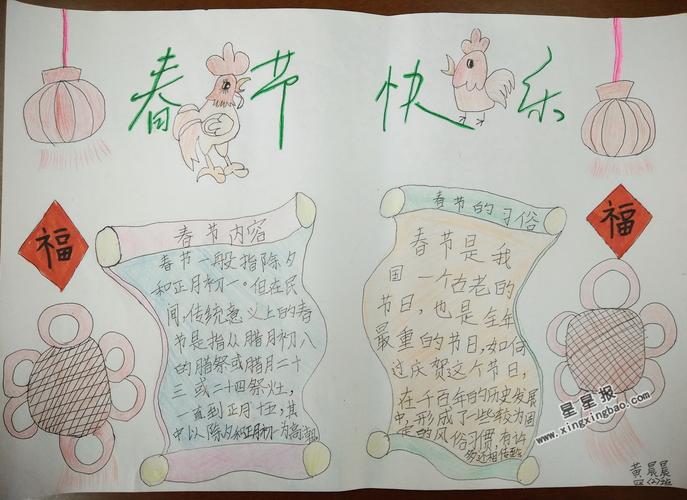 春节快乐
福
福
春节内容
春节一般指除夕
和正月初一。但在民
间,传统意义上的春
节是指从腊月初八
的腊祭或腊月二十
三或二十四祭灶,
一直到正月十五,其
中以除夕和正月初一为高潮
春节的习俗
春节是我
国一个古老的
节日,也是全年
最重的节日,如何
过庆贺这个节日,
在千百年的历史发展
中,形成了一些较为固
定的风俗习惯,有许
多还相传至
星星报
www.xingxingbao.com
黄晨晨